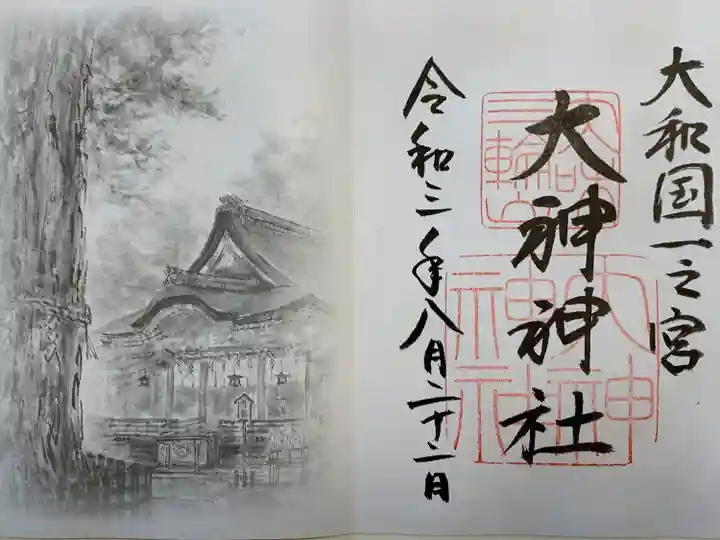 大和国一之宮
大神神社
大神神社
令和三年八月二十二日